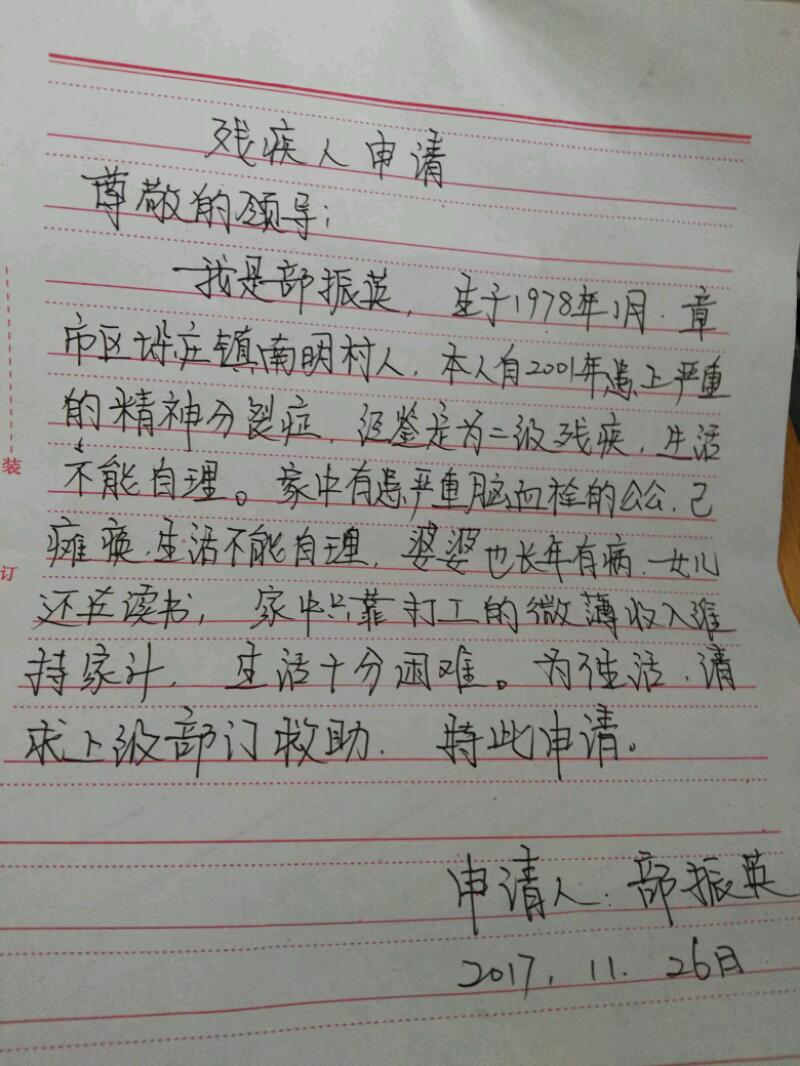 残疾人申请
尊敬的领导：
我是部振英，生于1978年1月.章
市区垛庄镇南明村人.本人自2001年患上严重
的精神分裂症.经鉴定为二级残疾.生活
不能自理。家中有患严重脑血栓的公公.已
瘫痪.生活不能自理.婆婆也长年有病.一女儿
还在读书，家中只靠打工的微薄收入维
持家计.生活十分困难。为了生活.请
求上级部门救助.特此申请。
申请人：部振英
2017.11.26日
装
订